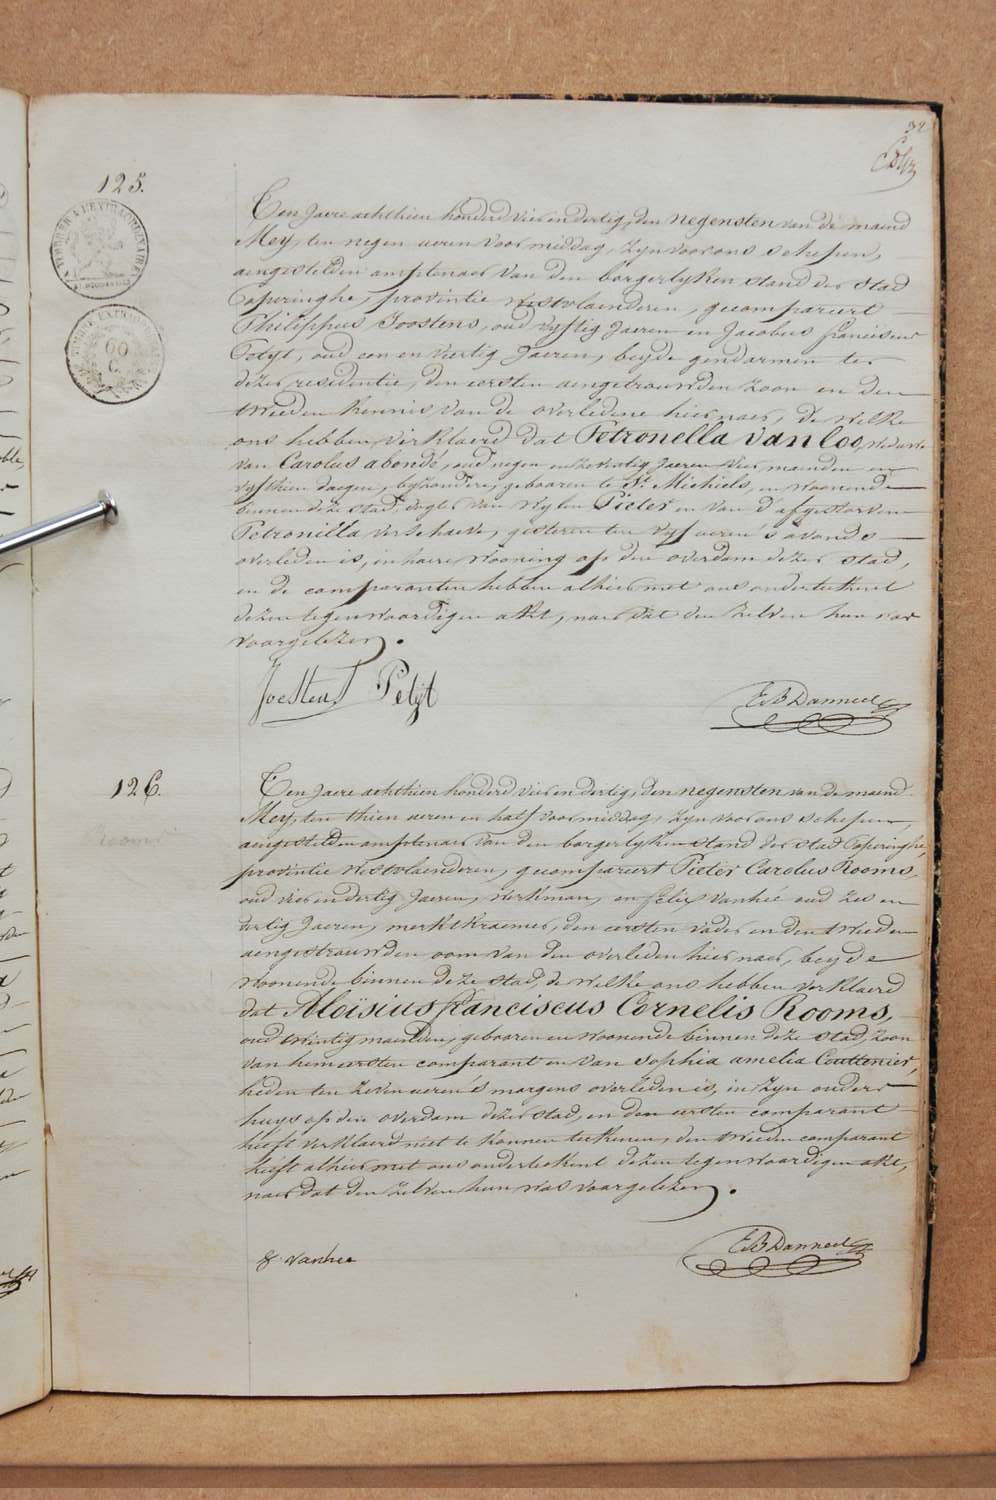 32
125.
Ten Jaere achthien honderd vier en dertig, den negensten van de maend
Mey, ten negen ueren voor middag, zyn voor ons schepen,
aengestelden amptenaer van den borgerlyken stand der stad
Poperinghe, provintie Westvlaenderen, gecompareert
Philippus Joostens, oud vyftig Jaeren en Jacobus franciscus
Petyt, oud een en viertig Jaeren, beyde gendarmen ter
dezer residentie, den eersten aengetrouwden zoon en den
tweeden kennis van de overledene hier naer, de welke
ons hebben verklaerd dat Petronella Van loo, weduwe
van Carolus abondé, oud negen en zeventig Jaeren vier maenden en
vyfthien daegen, byzondere, gebooren te St Michiels, en woonende
binnen deze stad, dogter van wylen Pieter en van d'afgestorvene
Petronilla verschaeve, gisteren ten vyf ueren 's avonds
overleden is, in haere wooning op den overdam dezer stad,
en de comparanten hebben alhier met ons onderteekent
dezen tegenwoordigen akt, naer dat den zelven hun was
voorgelezen.
Joostens Petyt
E B Danneel
126.
Ten Jaere achthien honderd vier en dertig, den negensten van de maend
Mey, ten thien ueren en half voor middag, zyn voor ons schepen,
aengestelden amptenaer van den borgerlyken stand der stad Poperinghe,
provintie Westvlaenderen, gecompareert Pieter Carolus Rooms,
oud vier en dertig Jaeren, werkman, en felix vanhée oud zes en
dertig Jaeren, merktkraemer, den eersten vader en den tweeden
aengetrouwden oom van den overleden hier naer, beyde
woonende binnen deze stad, de welke ons hebben verklaerd
dat Aloïsius franciscus Cornelis Rooms,
oud twintig maenden, gebooren en woonende binnen deze stad, zoon
van hem eersten comparant en van Sophia amelia Couttenier,
heden ten zeven ueren 's morgens overleden is, in zyn ouders
huys op den overdam dezer stad, en den eersten comparant
heeft verklaerd niet te konnen teekenen, den tweeden comparant
heeft alhier met ons onderteekent dezen tegenwoordigen akt,
naer dat den zelven hun was voorgelezen.
f. vanhee
E B Danneel